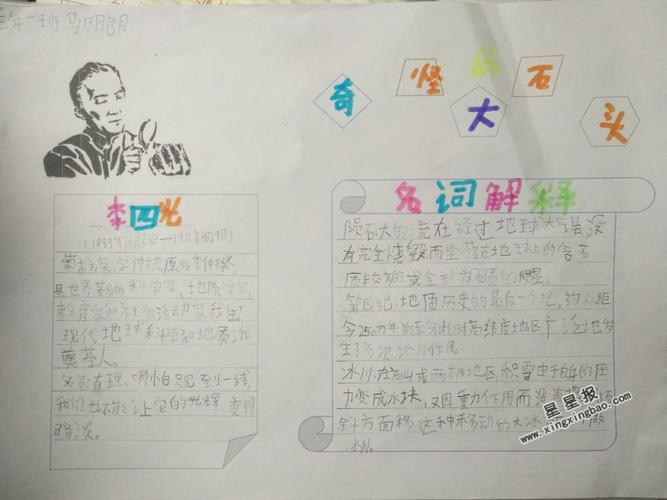 三年一班
奇怪的大石头
李四光
(1889年10月26日—1971年4月29日)
蒙古族,字仲揆原名李仲揆
是世界著名的科学家、地质学家
教育家和社会活动家我国
现代地球科学和地质工作
奠基人。
名言真理,哪怕只见到一线,
我们也不能让它的光辉变得
暗淡。
名词解释
陨石大的流在经过地球大气层没
有完全烧毁而坠落在地球上的含石
质较多或全部为石质的
第四纪:地质历史的最后一个纪,约从距
今
生了多次冰川作用。
冰川在高山或两极地区,积雪由于自的压
力变成冰块,又因重力作用而沿着
斜方面移,这种移动的大冰 做
冰川。
星星报
www.xingxingbao.com